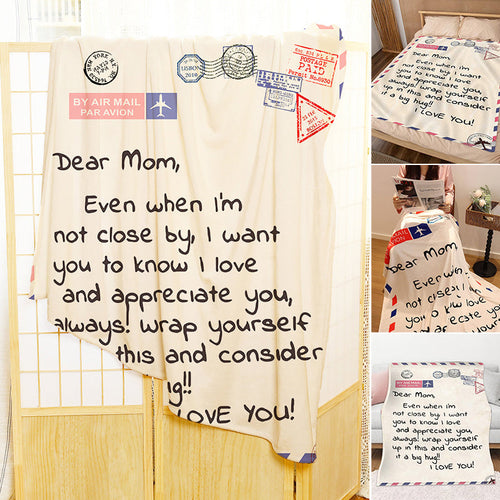 NEW YORK N.Y.
LISBON
2010
POSTAGE
PAID
Permit No.6930
BY AIR MAIL
PAR AVION
Dear Mom,
Even when i'm
not close by, I want
you to know I love
and appreciate you,
always! wrap yourself
this and consider
ig!!
LOVE YOU!
Dear Mom,
Even when i'm
not close by, I want
you to know I love
and appreciate you,
always! wrap yourself
up in this and consider
it a big hug!!
I LOVE YOU!
AIR MAIL
AVION
Dear Mom,
Even when
not close! by
you to know I love
eciate you,
BY AIR MAIL
PAR AVION
Dear Mom,
Even when i'm
not close by, I want
you to know I love
and appreciate you,
always! wrap yourself
up in this and consider
it a big hug!!
I LOVE YOU!